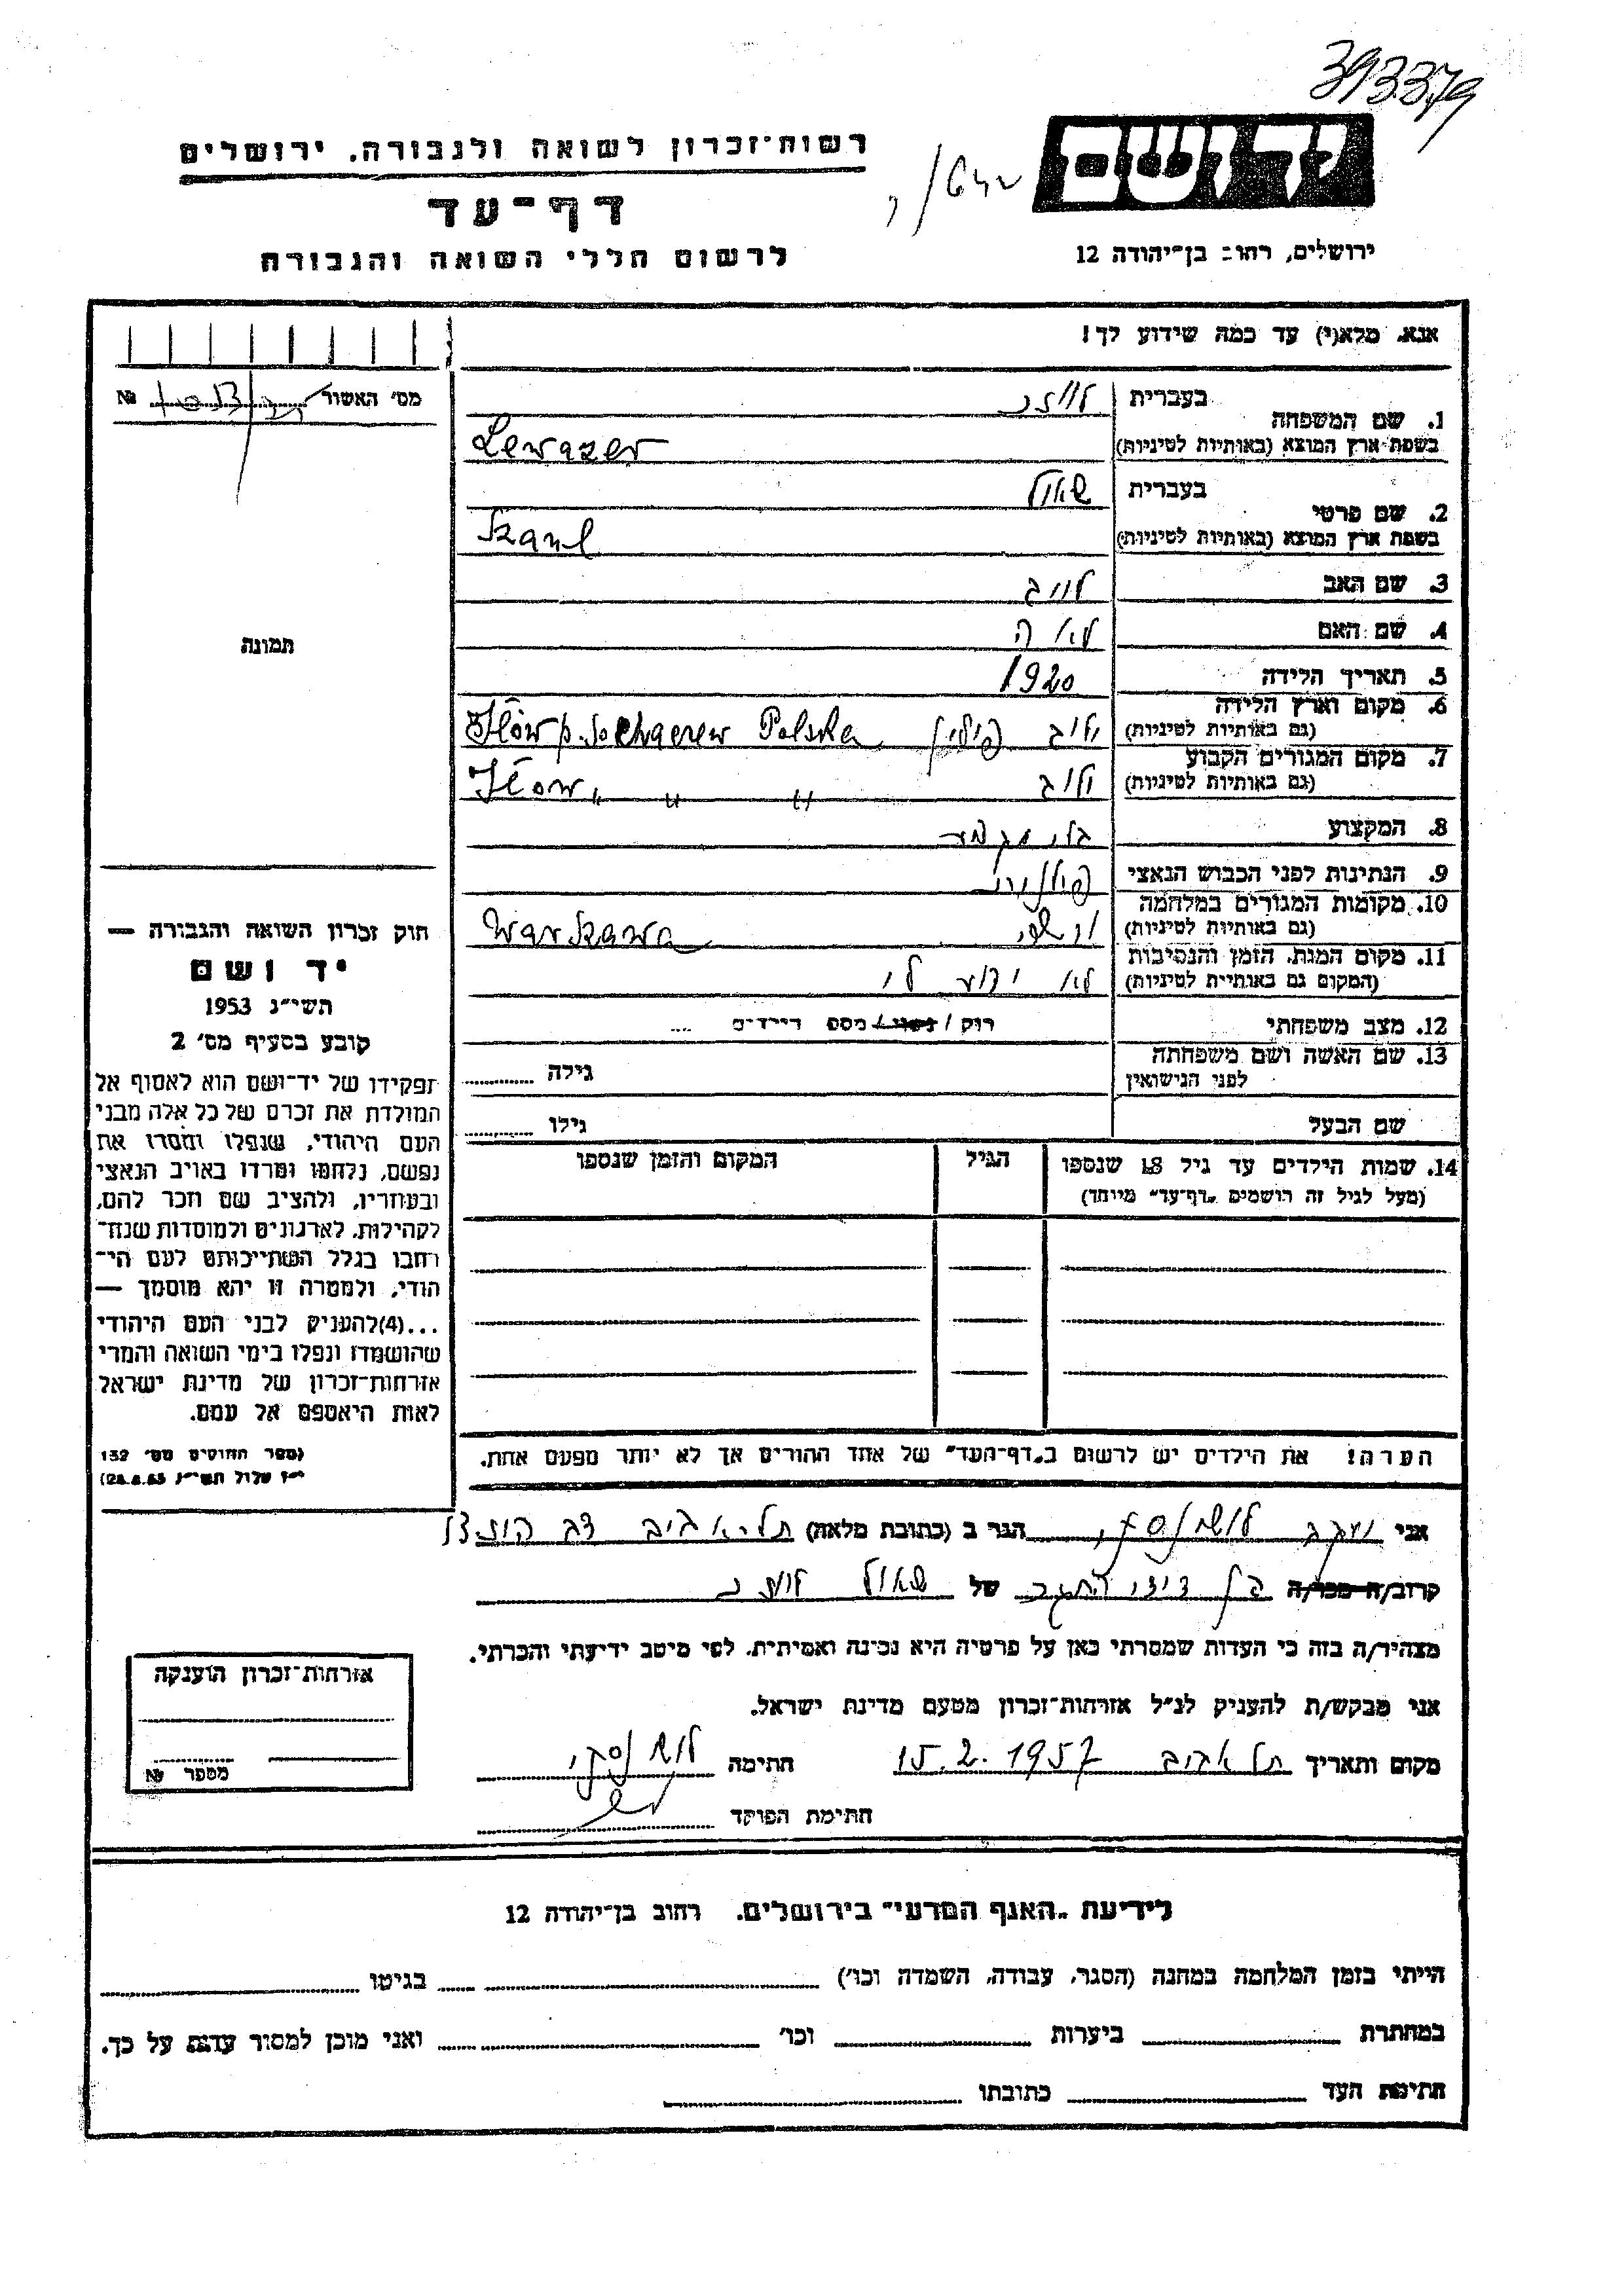 393379
רשות־זכרון לשואה ולגבורה, ירושלים
דף־עד
לרשום חללי השואה והגבורה
ידושם
ירושלים, רחוב בן־יהודה 12
אנא, מלא(י) עד כמה שידוע לך!
מס׳ האשור № 
1. שם המשפחה בעברית
בשפת ארץ המוצא (באותיות לטיניות) Lewazer
2. שם פרטי בעברית שאול
בשפת ארץ המוצא (באותיות לטיניות) Szaul
3. שם האב לייב
4. שם האם לאה
5. תאריך הלידה 1920
6. מקום וארץ הלידה (גם באותיות לטיניות) ילוב פולין Iłów p. Sochaczew Polska
7. מקום המגורים הקבוע (גם באותיות לטיניות) ילוב Iłów " " "
8. המקצוע
9. הנתינות לפני הכבוש הנאצי פולנית
10. מקומות המגורים במלחמה (גם באותיות לטיניות) ורשה Warszawa
11. מקום המות, הזמן והנסיבות (המקום גם באותיות לטיניות) לא ידוע לי
12. מצב משפחתי רווק / נשוי / מספר הילדים ....
13. שם האשה ושם משפחתה לפני הנישואין גילה
שם הבעל גילו
14. שמות הילדים עד גיל 18 שנספו הגיל המקום והזמן שנספו
(מעל לגיל זה רושמים "דף־עד" מיוחד)
תמונה
חוק זכרון השואה והגבורה —
יד ושם
תשי״ג 1953
קובע בסעיף מס׳ 2
תפקידו של יד־ושם הוא לאסוף אל
המולדת את זכרם של כל אלה מבני
העם היהודי, שנפלו ומסרו את
נפשם, נלחמו ומרדו באויב הנאצי
ובעוזריו, ולהציב שם וזכר להם,
לקהילות, לארגונים ולמוסדות שנח־
רחבו בגלל השתייכותם לעם הי־
הודי, ולמטרה זו יהא מוסמך —
...(4)להעניק לבני העם היהודי
שהושמדו ונפלו בימי השואה והמרי
אזרחות־זכרון של מדינת ישראל
לאות היאספם אל עמם.
(ספר החוקים מס׳ 132
י״ז אלול תשי״ג 28.8.53)
הערה! את הילדים יש לרשום ב"דף־העד" של אחד ההורים אך לא יותר מפעם אחת.
אני יעקב הגר ב (כתובת מלאה) תל־אביב
קרוב/ה מכר/ה בן דוד של שאול
מצהיר/ה בזה כי העדות שמסרתי כאן על פרטיה היא נכונה ואמיתית, לפי מיטב ידיעתי והכרתי.
אני מבקש/ת להעניק לנ״ל אזרחות־זכרון מטעם מדינת ישראל.
מקום ותאריך תל אביב 15.2.1957 חתימה
חתימת הפוקד
אזרחות־זכרון הוענקה
מספר №
לידיעת "האגף המדעי" בירושלים, רחוב בן־יהודה 12
הייתי בזמן המלחמה במחנה (הסגר, עבודה, השמדה וכו׳) בגיטו
במחתרת ביערות וכו׳ ואני מוכן למסור עדות על כך.
חתימת העד כתובתו